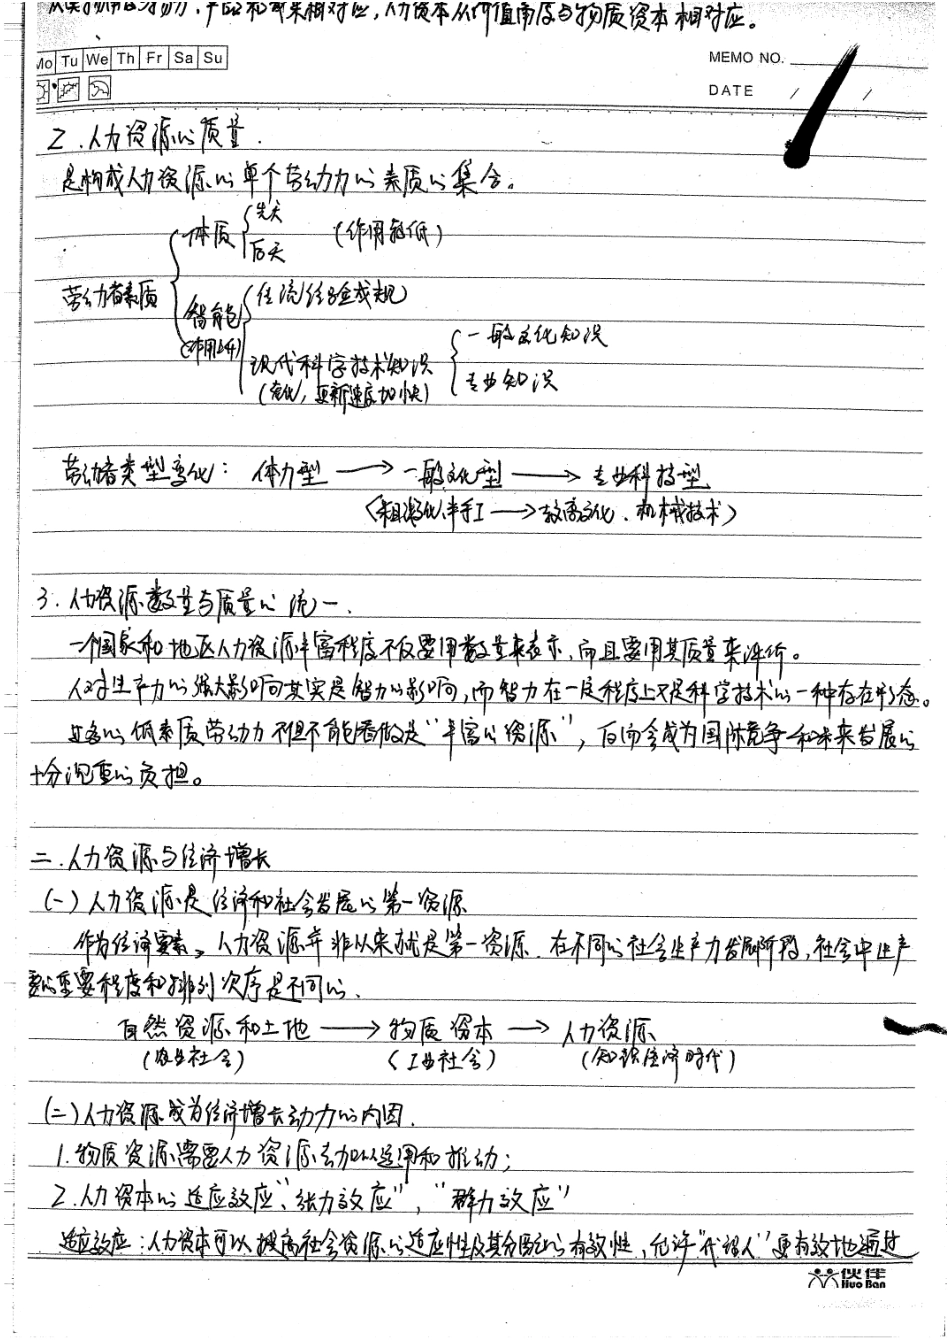 产品和需求相对应，人力资本从价值角度与物质资本相对应。
Mo Tu We Th Fr Sa Su
MEMO NO.
DATE / /
2.人力资源的质量.
是构成人力资源的单个劳动力的素质的集合。
劳动者素质 体质 先天 后天 (作用较低)
智能 (作用上升) 传统经验或规
现代科学技术知识 一般文化知识
(老化,更新速度加快) 专业知识
劳动者类型变化: 体力型 → 一般文化型 → 专业科技型
3.人力资源数量与质量的统一.
一个国家和地区人力资源丰富程度不仅要用数量来表示,而且要用其质量来评价。
人对生产力的强大影响其实是智力的影响,而智力在一定程度上又是科学技术的一种存在形态。
过多的低素质劳动力不但不能看做是“丰富的资源”,反而会成为国际竞争和未来发展的
十分沉重的负担。
二.人力资源与经济增长
(一)人力资源是经济和社会发展的第一资源
作为经济要素,人力资源并非从来就是第一资源.在不同的社会生产力发展阶段,社会中生产
要的重要程度和排列次序是不同的.
自然资源和土地 → 物质资本 → 人力资源
(农业社会) (工业社会) (知识经济时代)
(二)人力资源成为经济增长动力的内因.
1.物质资源需要人力资源去加以运用和推动;
2.人力资本的适应效应“,张力效应”,“群力效应”
适应效应:人力资本可以提高社会资源的适应性及其分配的有效性,允许“代理人”更有效地通过
伙伴
Huo Ban